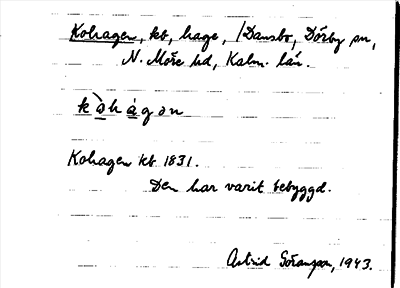 Kohagen, kb, hage, /Dansbo, Dörby sn,
N. Möre hd, Kalm. län.
kòhágən
Kohagen kb 1831.
Den har varit bebyggd.
Astrid Göransson, 1943.